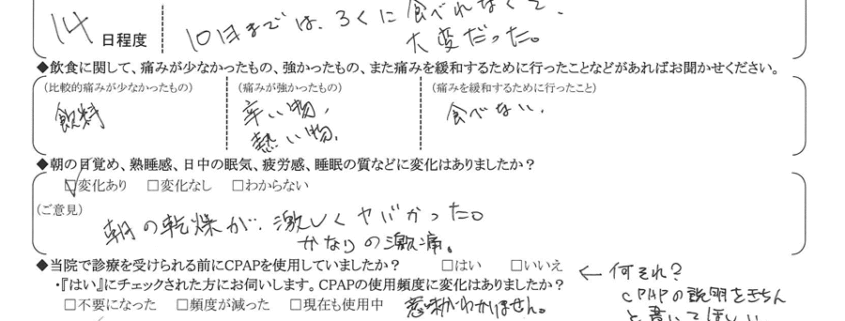 14 日程度 10日までは、ろくに食べれなくて、
大変だった。
◆飲食に関して、痛みが少なかったもの、強かったもの、また痛みを緩和するために行ったことなどがあればお聞かせください。
(比較的痛みが少なかったもの) (痛みが強かったもの) (痛みを緩和するために行ったこと)
飲料 辛い物、 食べない、
熱い物、
◆朝の目覚め、熟睡感、日中の眠気、疲労感、睡眠の質などに変化はありましたか？
☑変化あり □変化なし □わからない
(ご意見)
朝の乾燥が、激しくヤバかった。
かなりの激痛。
◆当院で診療を受けられる前にCPAPを使用していましたか？ □はい □いいえ ← 何それ？
・『はい』にチェックされた方にお伺いします。CPAPの使用頻度に変化はありましたか？ CPAPの説明をきちん
□不要になった □頻度が減った □現在も使用中 意味がわかりません。 と書いてほしい